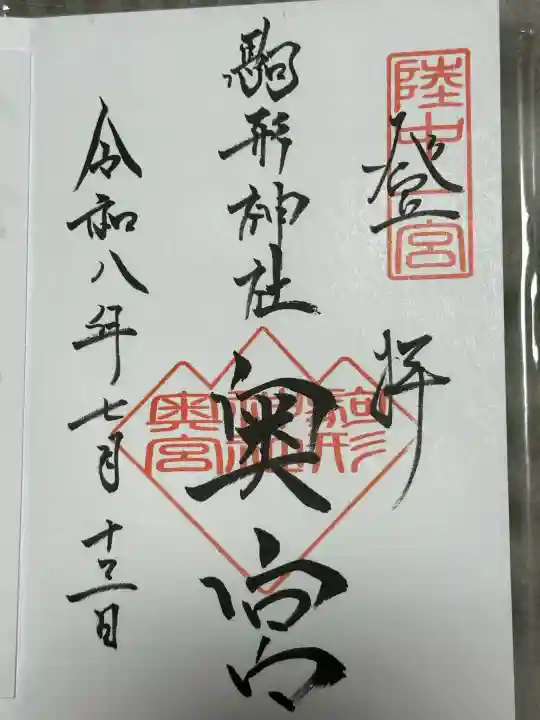 陸中一宮
登拝
駒形神社
奥宮
駒形
神社
奥宮
令和八年七月十三日